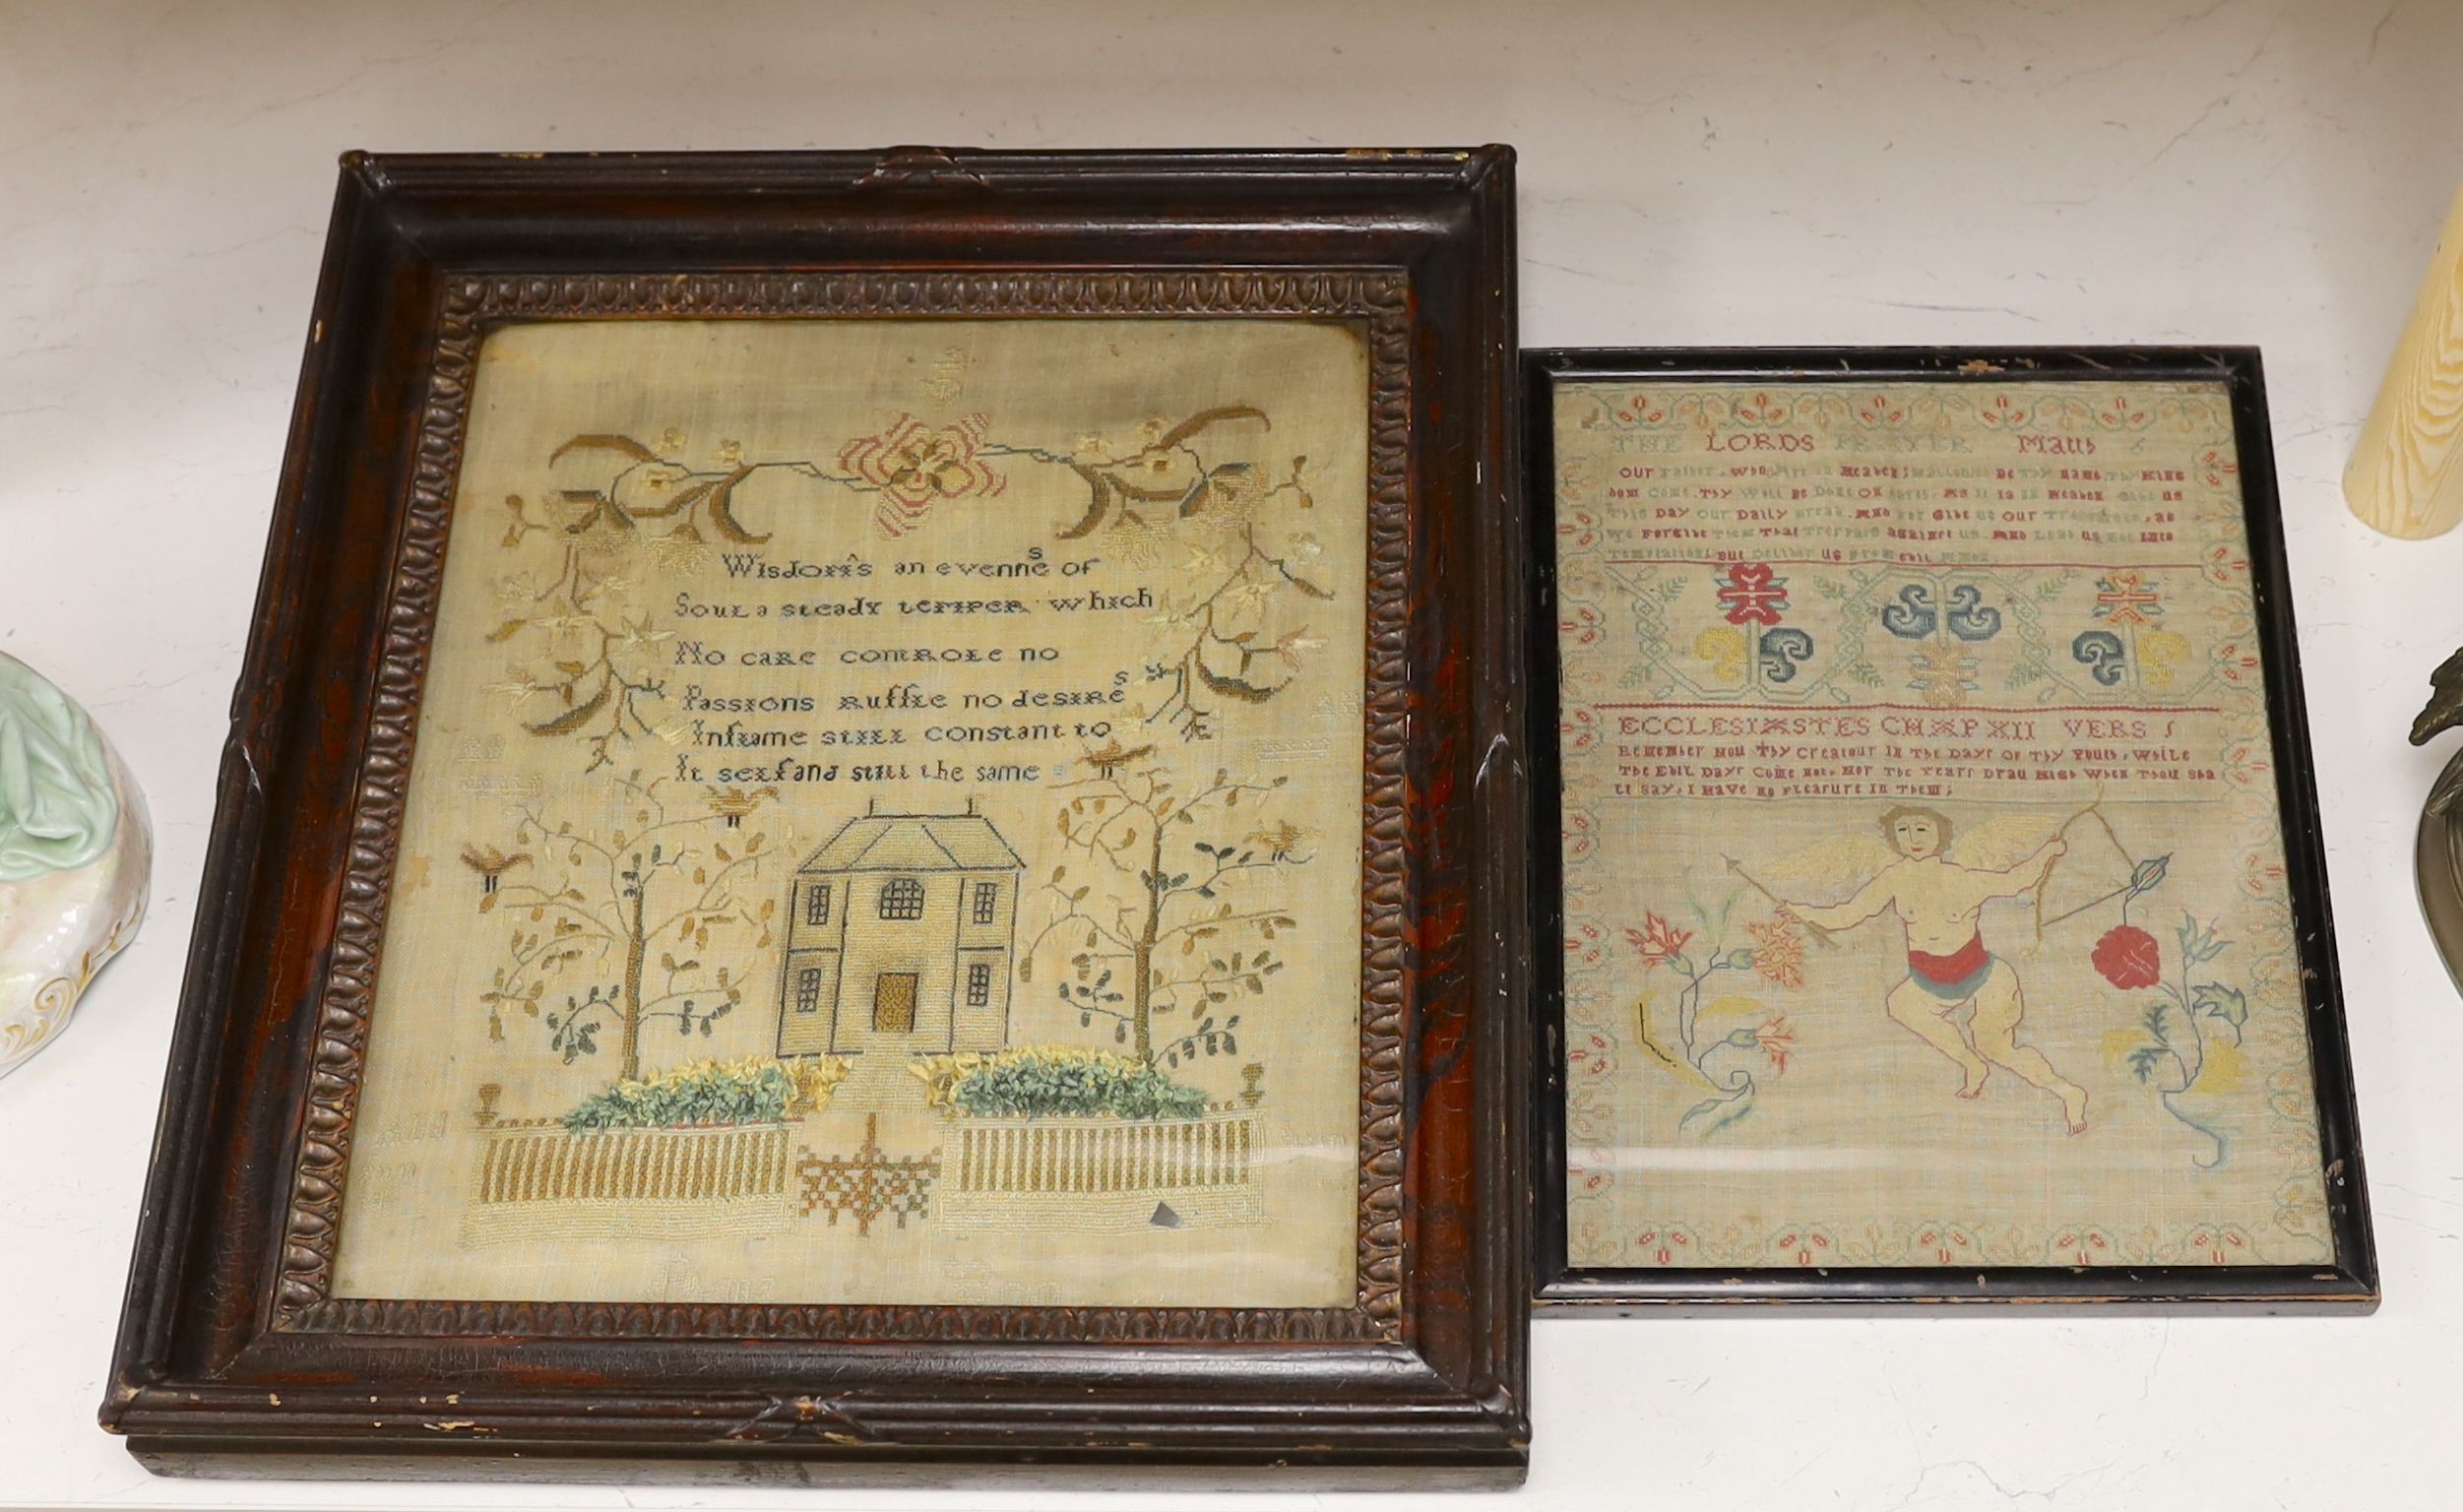 Wisdom's an evenness of
Soul a steady temper which
No care controle no
Passions ruffle no desires
Inflame still constant to
It self and still the same
THE LORDS PRAYER Matt 6
Our Father, Who Art in Heaven; Hallowed Be Thy Name, Thy King
dom Come. Thy Will Be Done On Earth, As it is in Heaven Give us
This Day Our Daily Bread. And For Give us Our Trespasses, as
We Forgive Them That Trespass against us. And Lead us Not Into
Temptation; But Deliver us From Evil Amen.
ECCLESIASTES CHAP XII VERS 1
Remember Now Thy Creatour In The Days Of Thy Youth, While
The Evil Days Come not, Nor The Years Drau Nigh When Thou Sha
lt say, I Have no Pleasure In Them;